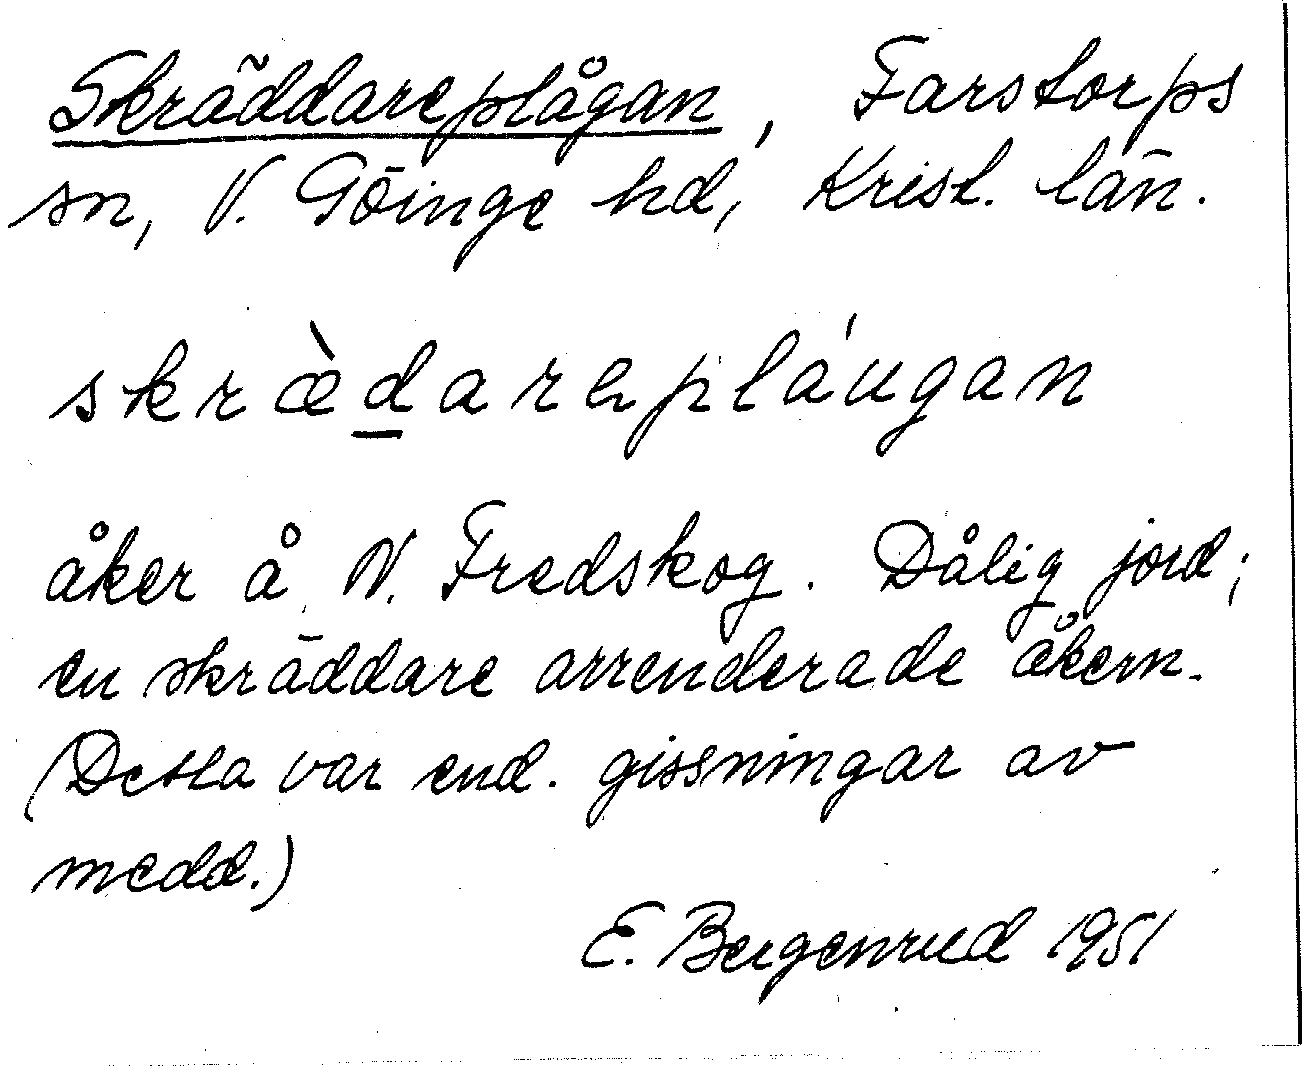 Skräddareplågan, Farstorps
sn, V. Göinge hd, Krist. län.
skræ̀d̲arepláugan
åker å N. Fredskog. Dålig jord;
en skräddare arrenderade åkern.
(Detta var end. gissningar av
medd.)
E. Bergenrud 1951